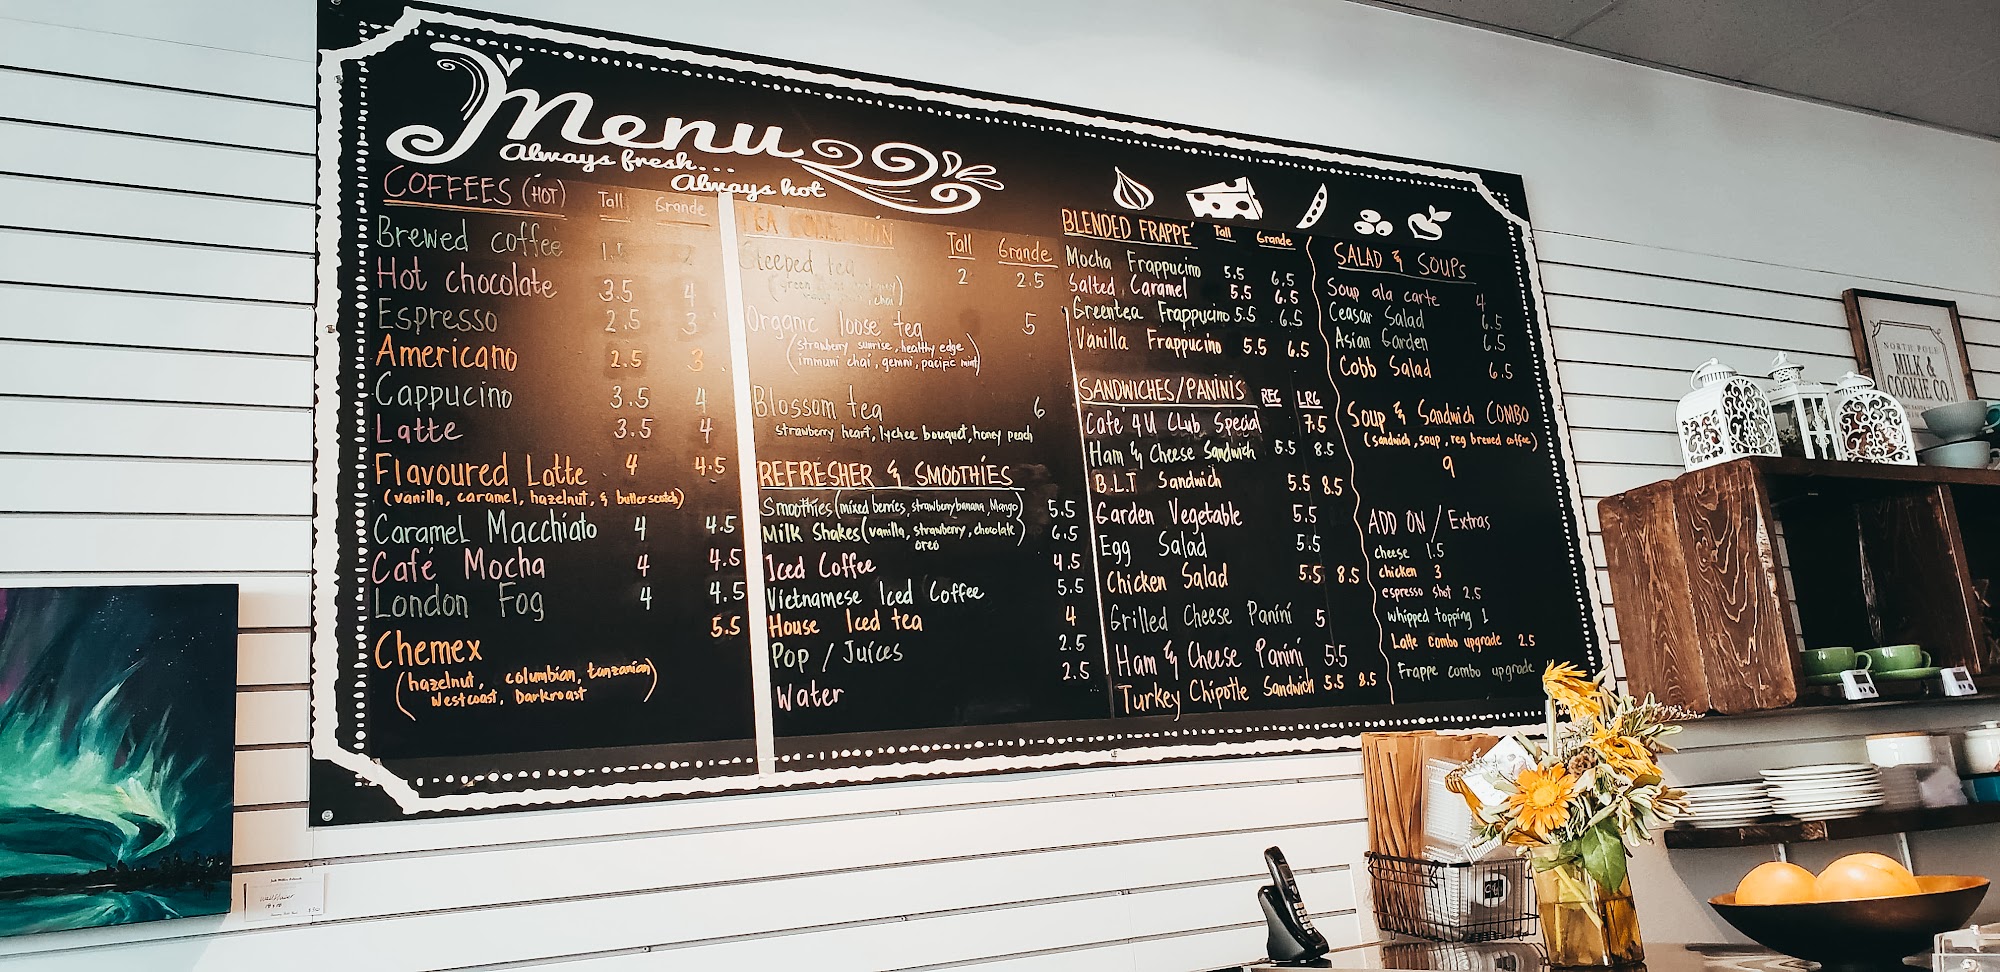 Menu
Always fresh...
Always hot
COFFEES (HOT) Tall Grande
Brewed coffee 1.5 2
Hot chocolate 3.5 4
Espresso 2.5 3
Americano 2.5 3
Cappucino 3.5 4
Latte 3.5 4
Flavoured Latte 4 4.5
(vanilla, caramel, hazelnut, & butterscotch)
Caramel Macchiato 4 4.5
Café Mocha 4 4.5
London Fog 4 4.5
Chemex 5.5
(hazelnut, columbian, tanzanian,
Westcoast, Darkroast)
TEA COLLECTION Tall Grande
Steeped tea 2 2.5
(green
chai)
Organic loose tea 5
(strawberry sunrise, healthy edge
immuni chai, gemni, pacific mint)
Blossom tea 6
strawberry heart, lychee bouquet, honey peach
REFRESHER & SMOOTHIES
Smoothies (mixed berries, strawberry banana, Mango) 5.5
Milk Shakes (vanilla, strawberry, chocolate 6.5
oreo)
Iced Coffee 4.5
Vietnamese Iced Coffee 5.5
House Iced tea 4
Pop / Juices 2.5
Water 2.5
BLENDED FRAPPE' Tall Grande
Mocha Frappucino 5.5 6.5
Salted Caramel 5.5 6.5
Greentea Frappucino 5.5 6.5
Vanilla Frappucino 5.5 6.5
SANDWICHES/PANINIS REG LRG
Café 4U Club Special 7.5
Ham & Cheese Sandwich 5.5 8.5
B.L.T Sandwich 5.5 8.5
Garden Vegetable 5.5
Egg Salad 5.5
Chicken Salad 5.5 8.5
Grilled Cheese Panini 5
Ham & Cheese Panini 5.5
Turkey Chipotle Sandwich 5.5 8.5
SALAD & SOUPS
Soup ala carte 4
Ceasar Salad 6.5
Asian Garden 6.5
Cobb Salad 6.5
Soup & Sandwich COMBO
(sandwich, soup, reg brewed coffee)
9
ADD ON / Extras
cheese 1.5
chicken 3
espresso shot 2.5
whipped topping 1
Latte combo upgrade 2.5
Frappe combo upgrade
NORTH POLE
MILK &
COOKIE CO.